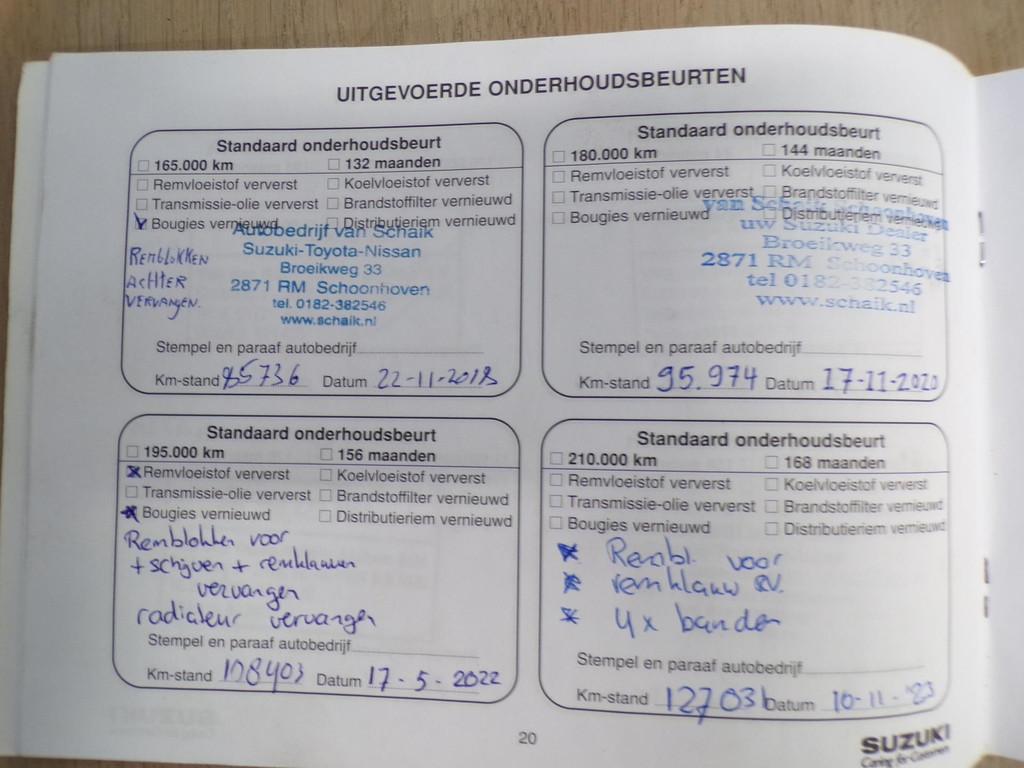 UITGEVOERDE ONDERHOUDSBEURTEN
Standaard onderhoudsbeurt
165.000 km 132 maanden
Remvloeistof ververst Koelvloeistof ververst
Transmissie-olie ververst Brandstoffilter vernieuwd
Bougies vernieuwd Distributieriem vernieuwd
REMBLOKKEN
ACHTER
VERVANGEN.
Autobedrijf van Schaik
Suzuki-Toyota-Nissan
Broeikweg 33
2871 RM Schoonhoven
tel. 0182-382546
www.schaik.nl
Stempel en paraaf autobedrijf
Km-stand 85736 Datum 22-11-2018
Standaard onderhoudsbeurt
180.000 km 144 maanden
Remvloeistof ververst Koelvloeistof ververst
Transmissie-olie ververst Brandstoffilter vernieuwd
Bougies vernieuwd Distributieriem vernieuwd
van Schaik Schoonhoven
uw Suzuki Dealer
Broeikweg 33
2871 RM Schoonhoven
tel 0182-382546
www.schaik.nl
Stempel en paraaf autobedrijf
Km-stand 95.974 Datum 17-11-2020
Standaard onderhoudsbeurt
195.000 km 156 maanden
Remvloeistof ververst Koelvloeistof ververst
Transmissie-olie ververst Brandstoffilter vernieuwd
Bougies vernieuwd Distributieriem vernieuwd
Remblokken voor
+ schijven + remklauwen
vervangen
radiateur vervangen
Stempel en paraaf autobedrijf
Km-stand 108403 Datum 17-5-2022
Standaard onderhoudsbeurt
210.000 km 168 maanden
Remvloeistof ververst Koelvloeistof ververst
Transmissie-olie ververst Brandstoffilter vernieuwd
Bougies vernieuwd Distributieriem vernieuwd
Rembl. voor
remklauw RV.
4x banden
Stempel en paraaf autobedrijf
Km-stand 127036 Datum 10-11-'23
20
SUZUKI
Caring for Customers